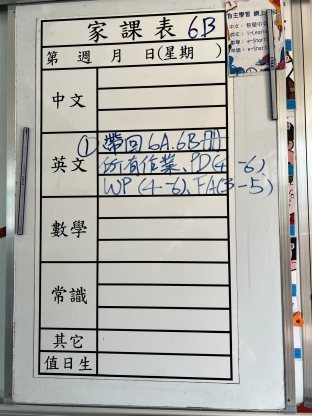 家課表 6B
第 週 月 日(星期 )
中文
英文
①帶回6A.6B冊
所有作業、PD(4-6)、
WP(4-6)、FA(3-5)
數學
常識
其它
值日生
自主學習 網上